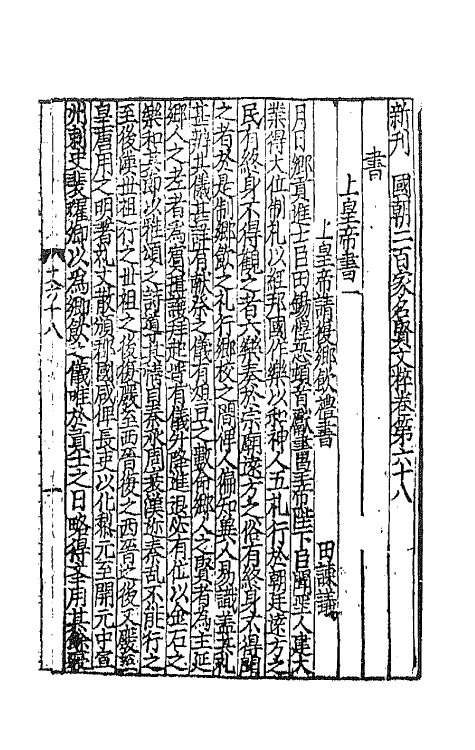 新刊國朝二百家名賢文粹卷第六十八
書
上皇帝書一
上皇帝請復鄉飲禮書 田諫議
月日鄉貢進士臣田錫惶恐頓首獻書皇帝陛下臣聞聖人建大
業得大位制札以經邦國作樂以和神人五札行於朝廷遠方之
民有終身不得觀之者六樂奏於宗廟遠方之俗有終身不得聞
之者於是制鄉飲之札行鄉校之間俾人徧知異人易識盖其札
甚辨其儀甚詳有獻祭之儀有俎豆之數命鄉人之賢者為主延
鄉人之老者為賓揖讓拜起皆有儀升降進退必有位以金石之
樂和其節以雅頌之詩導其情自秦承周衰漢弥秦乱不能行之
至後漢世祖行之世祖之後復廢至西晉復之西晉之後又廢至
皇唐用之明著札文散頒郡國咸俾長吏以化黎元至開元中宣
州刺史裴耀卿以為鄉飲之儀唯於貢士之日略得至用其餘
六十八